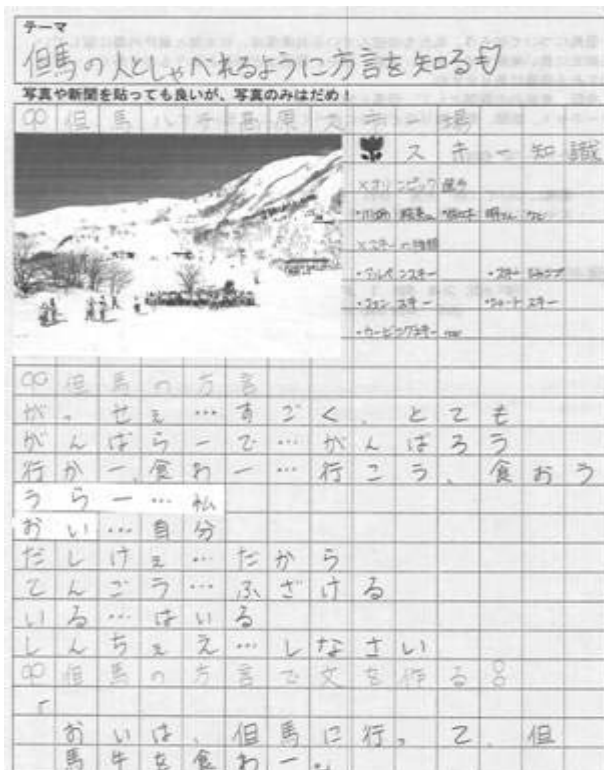 テーマ
但馬の人としゃべれるように方言を知るも♡
写真や新聞を貼っても良いが、写真のみはだめ！
但馬 高原スキー場
スキー知識
×オリンピック選手
×スキーの種類
・アルペンスキー ・スキージャンプ
・ファンスキー ・ショートスキー
・カービングスキー
但馬の方言
がっせぇ…すごく、とても
がんばらーで…がんばろう
行かー、食わー…行こう、食おう
うらー…私
おい…自分
だしけぇ…だから
てんごう…ふざける
いる…はいる
しんちぇえ…しなさい
但馬の方言で文を作る
「
おいは、但馬に行って、但
馬牛を食わー。